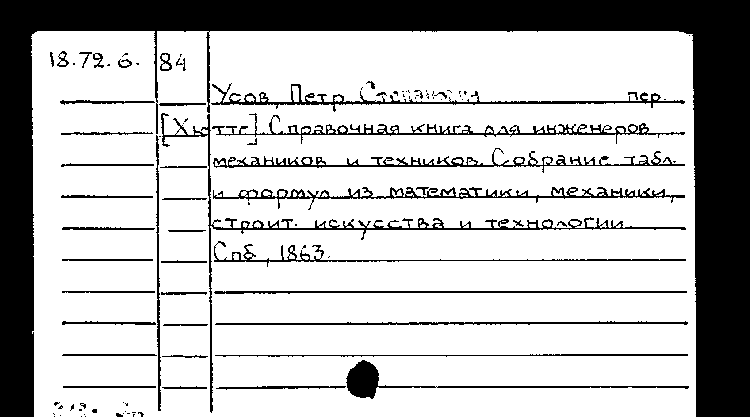 18.72.6. 84
Усов, Петр Степанович пер.
[Хютте]. Справочная книга для инженеров,
механиков и техников. Собрание табл.
и формул из математики, механики,
строит. искусства и технологии.
Спб., 1863.